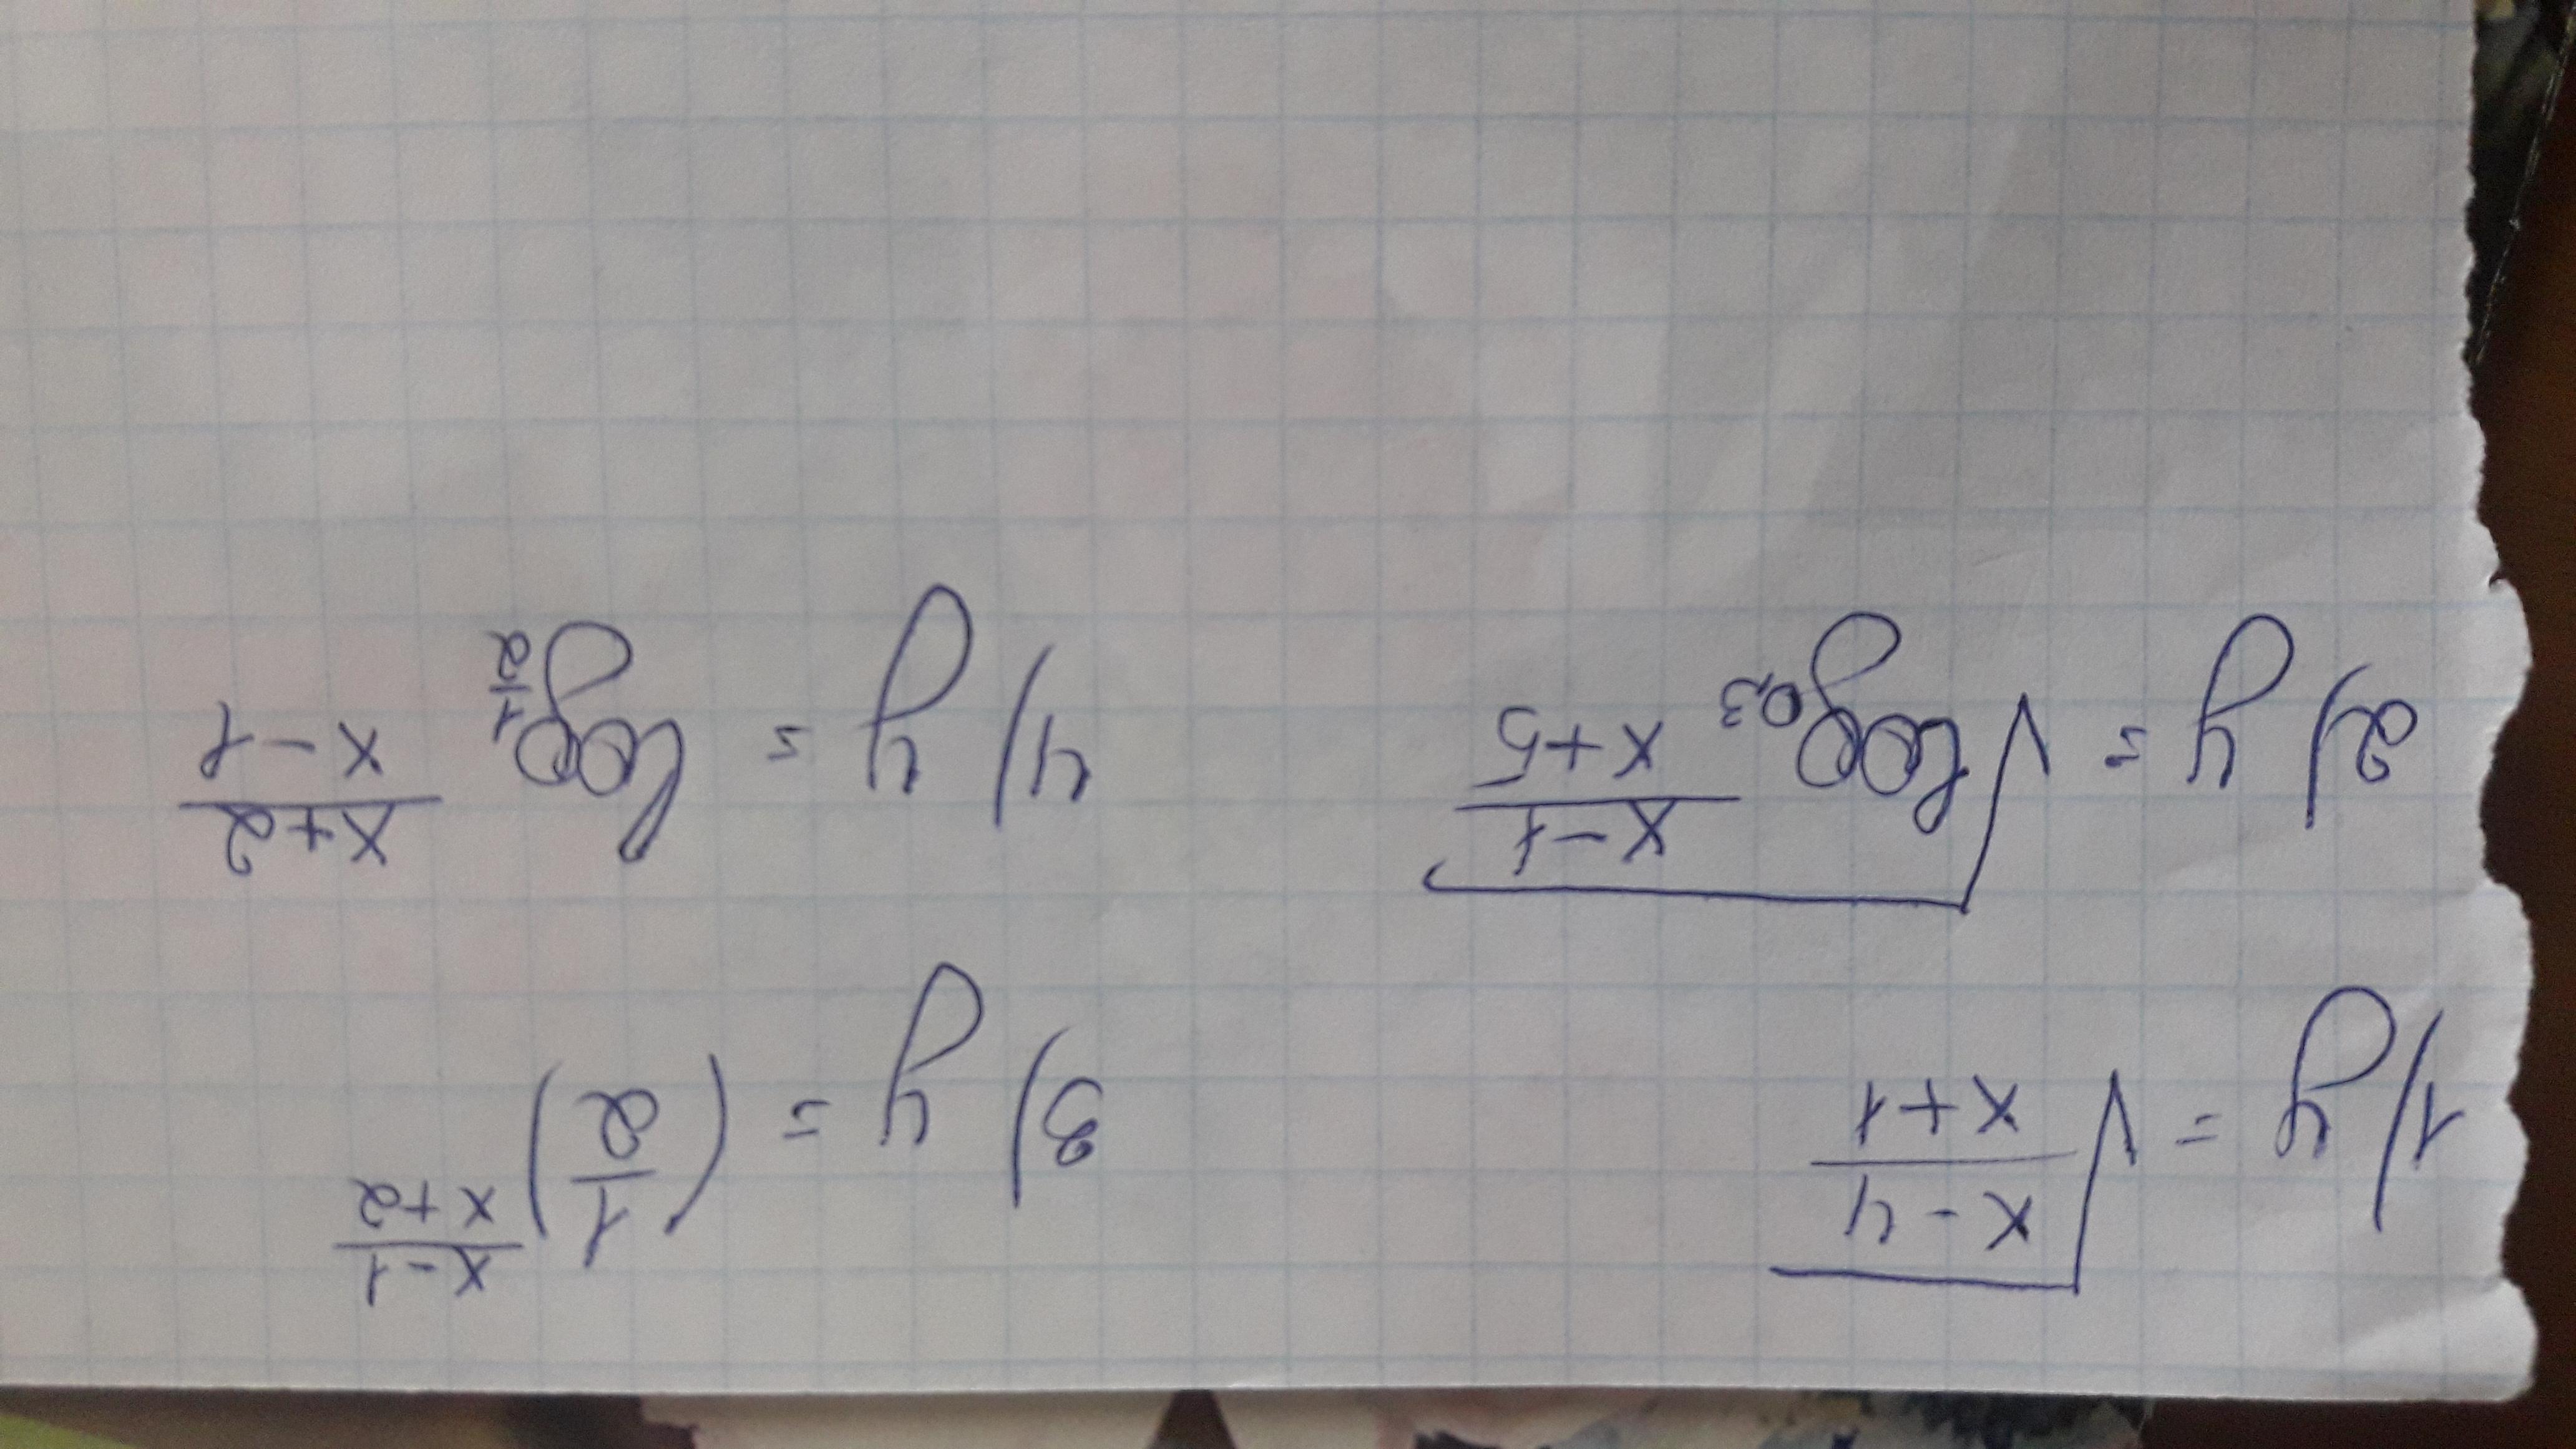 1) y = √((x-4)/(x+1))
2) y = √(log_{0,3} (x-1)/(x+5))
3) y = (1/2)^{(x-1)/(x+2)}
4) y = log_{1/2} (x+2)/(x-1)